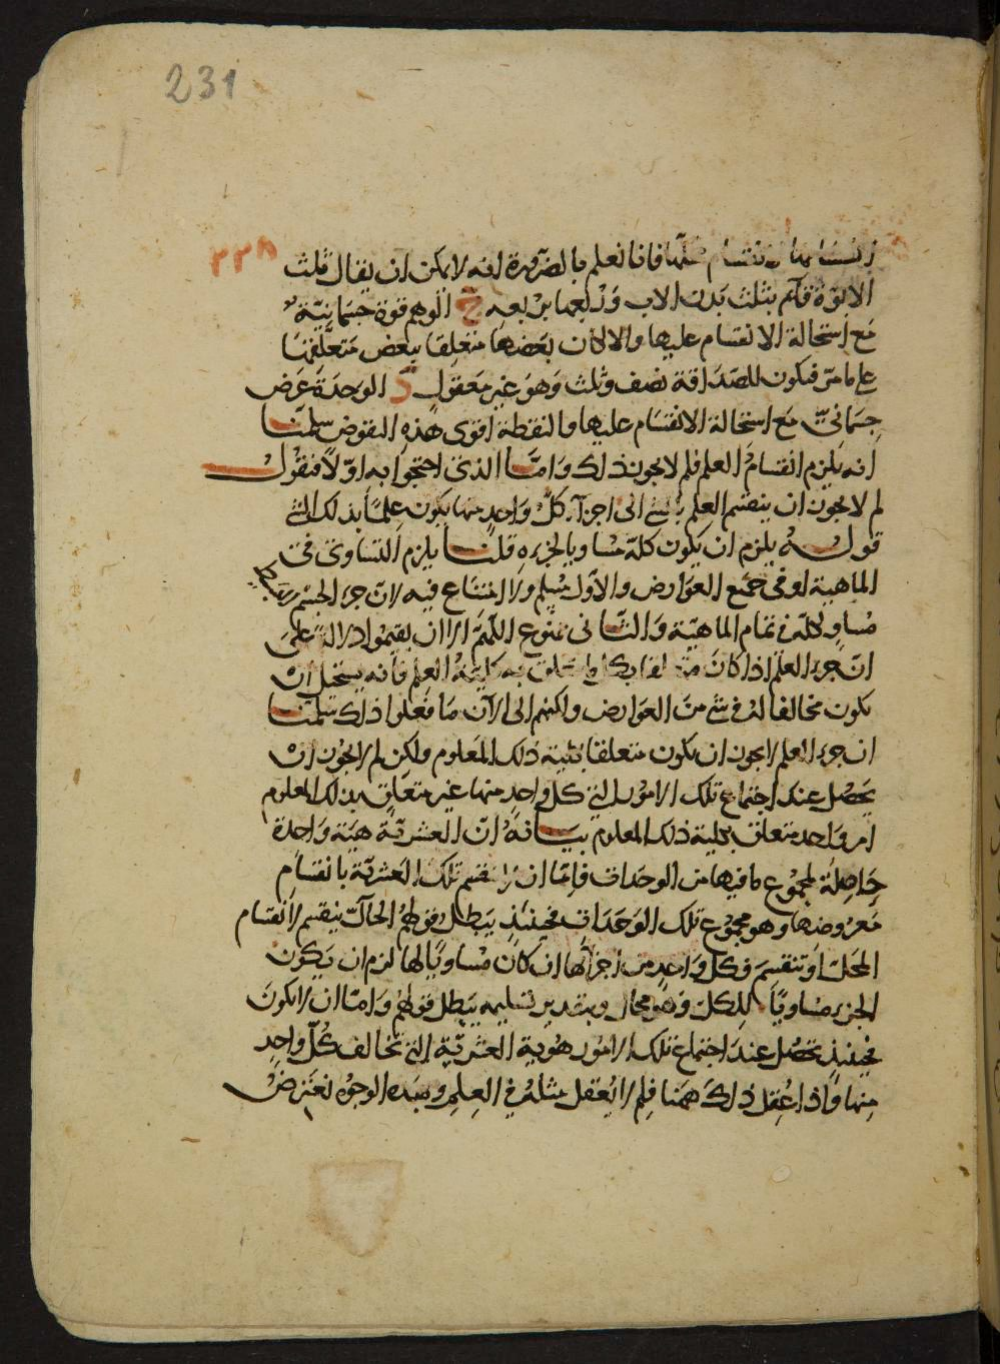 231
٢٣٨
فانا نعلم بالضرورة انه لا يمكن ان يقال ثلث
الابوة قائم بثلث بدن الاب ج الوهم قوة جسمانية
مع استحالة الانقسام عليها والا لكان بعضها متعلقا ببعض متعلقها
على ما مر فيكون للصداقة نصف وثلث وهو غير معقول د الوحدة عرض
جسماني مع استحالة الانقسام عليها والنقطة اقوى هذه النقوض سلمنا
انه يلزم انقسام العلم فلم لا يجوز ذلك واما الذي احتجوا به اولا فنقول
لم لا يجوز ان ينقسم العلم بالشئ الى اجزآء كل واحد منها يكون علما بذلك الشئ
قوله يلزم ان يكون كله مساويا لجزءه قلنا يلزم التساوي في
الماهية او في جميع العوارض والاول مسلم ولا امتناع فيه لان جزء الجسم
مساو لكله في تمام الماهية والثاني ممنوع اللهم الا ان يقيموا دلالة على
ان جزء العلم اذا كان متعلقا بكل ما يتعلق به كلية العلم فانه يستحيل ان
يكون مخالفا له في شئ من العوارض ولكنهم الى الآن ما فعلوا ذلك سلمنا
ان جزء العلم لا يجوز ان يكون متعلقا بكلية ذلك المعلوم ولكن لم لا يجوز ان
يحصل عند اجتماع تلك الامور التي كل واحد منها غير متعلق بذلك المعلوم
امر واحد متعلق بكلية ذلك المعلوم بيانه ان العشرية هيئة واحدة
حاصلة لمجموع ما فيها من الوحدات فاما ان لا تنقسم تلك العشرية بانقسام
معروضها وهو مجموع تلك الوحدات فحينئذ يبطل قولهم الحال ينقسم لانقسام
المحل او تنقسم فكل واحد من اجزائها ان كان مساويا لها لزم ان يكون
الجزء مساويا للكل وهو محال وبتقدير تسليمه يبطل قولهم واما ان لا يكون
فحينئذ تحصل عند اجتماع تلك الامور هوية العشرية التي تخالف كل واحد
منها واذا عقل ذلك ههنا فلم لا يعقل مثله في العلم وبهذه الوجوه نعترض